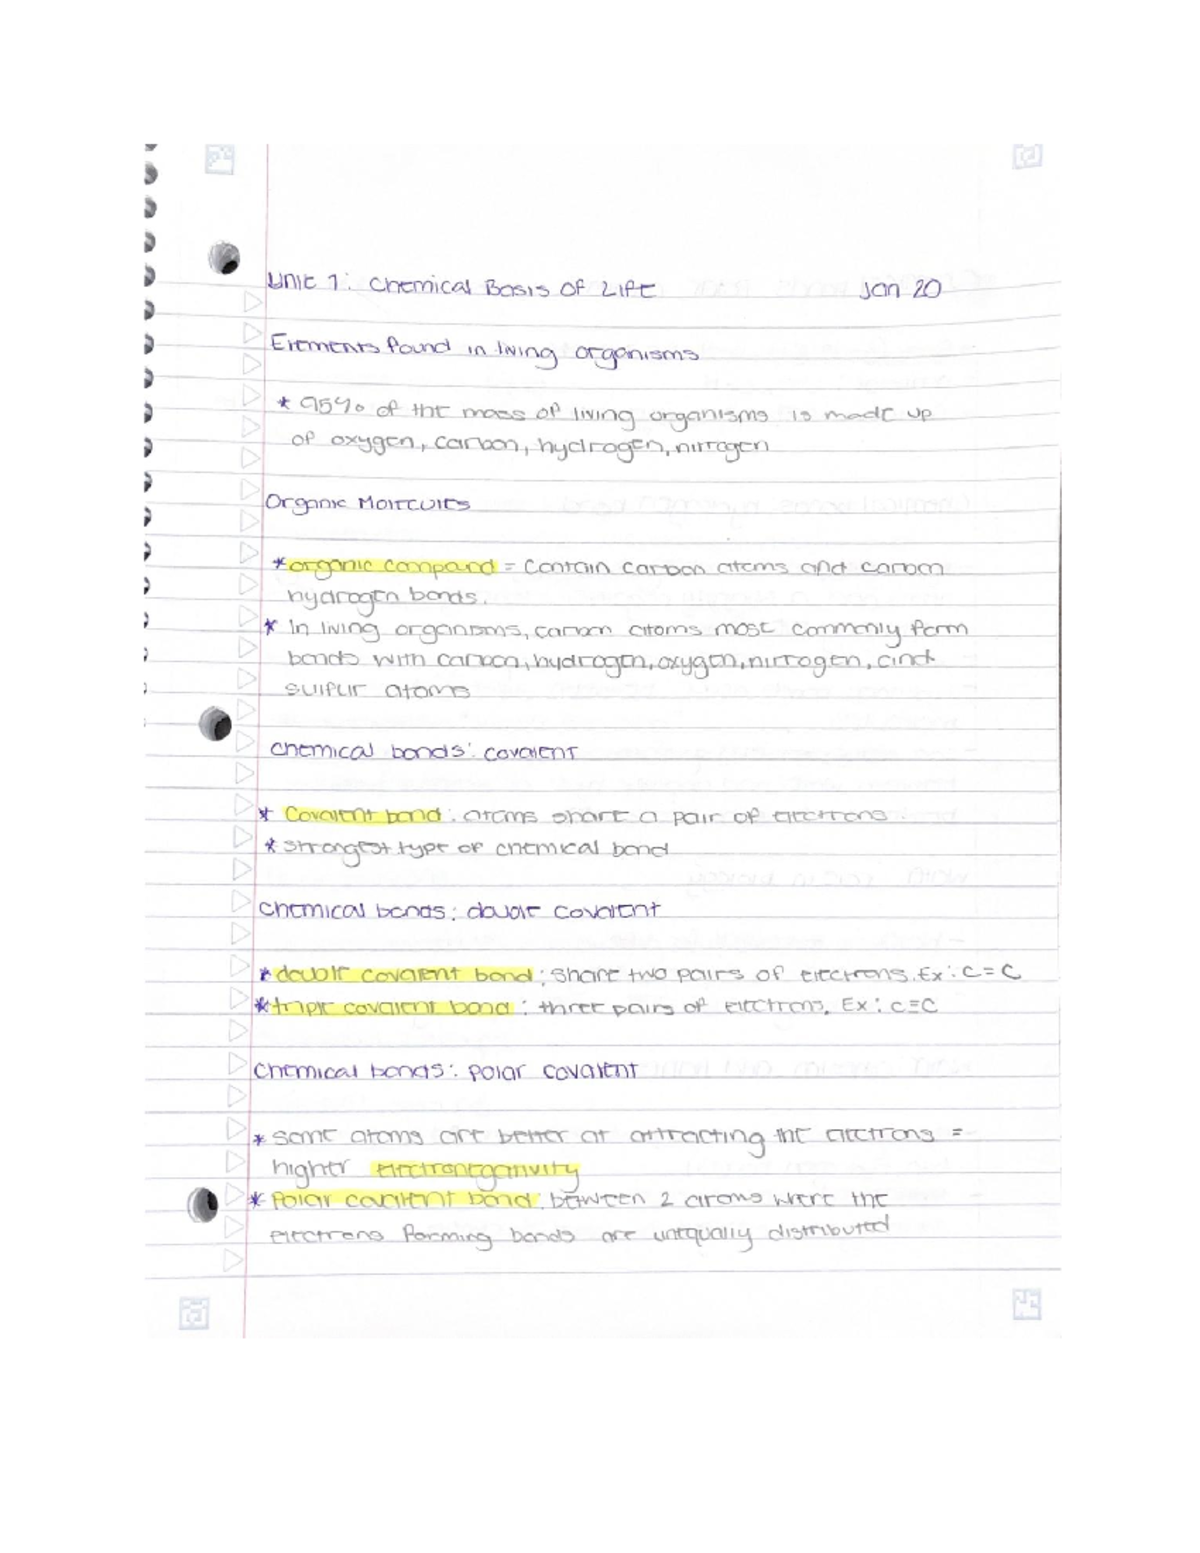 Unit 1: Chemical Basis of Life Jan 20
Elements found in living organisms
* 95% of the mass of living organisms is made up
of oxygen, carbon, hydrogen, nitrogen
Organic Molecules
* organic compound = contain carbon atoms and carbon
hydrogen bonds.
* In living organisms, carbon atoms most commonly form
bonds with carbon, hydrogen, oxygen, nitrogen, and
sulfur atoms
Chemical bonds: covalent
* Covalent bond: atoms share a pair of electrons
* strongest type of chemical bond
Chemical bonds: double covalent
* double covalent bond: share two pairs of electrons. Ex: C=C
* triple covalent bond: three pairs of electrons. Ex: C≡C
Chemical bonds: polar covalent
* some atoms are better at attracting the electrons =
higher electronegativity
* Polar covalent bond: between 2 atoms were the
electrons forming bonds are unequally distributed